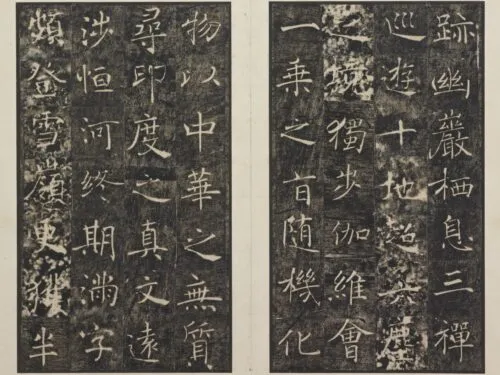 跡幽巖栖息三禪
巡遊十地超六塵
之境獨步伽維會
一乗之旨随機化
物以中華之無質
尋印度之真文遠
涉恒河終期滿字
頻登雪嶺更獲半